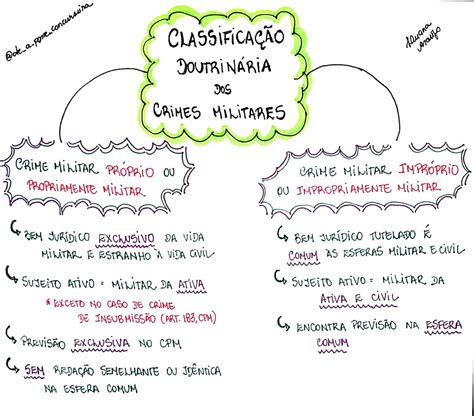 @de_a_pove_concurseira
Aluana
Araújo
CLASSIFICAÇÃO
DOUTRINÁRIA
DOS
CRIMES MILITARES
CRIME MILITAR PRÓPRIO OU
PROPRIAMENTE MILITAR
BEM JURÍDICO EXCLUSIVO DA VIDA
MILITAR E ESTRANHO À VIDA CIVIL
SUJEITO ATIVO = MILITAR DA ATIVA
* EXCETO NO CASO DE CRIME
DE INSUBMISSÃO (ART. 183, CPM)
PREVISÃO EXCLUSIVA NO CPM
SEM REDAÇÃO SEMELHANTE OU IDÊNTICA
NA ESFERA COMUM
CRIME MILITAR IMPRÓPRIO
OU IMPROPRIAMENTE MILITAR
BEM JURÍDICO TUTELADO É
COMUM ÀS ESFERAS MILITAR E CIVIL
SUJEITO ATIVO = MILITAR DA
ATIVA E CIVIL
ENCONTRA PREVISÃO NA ESFERA
COMUM